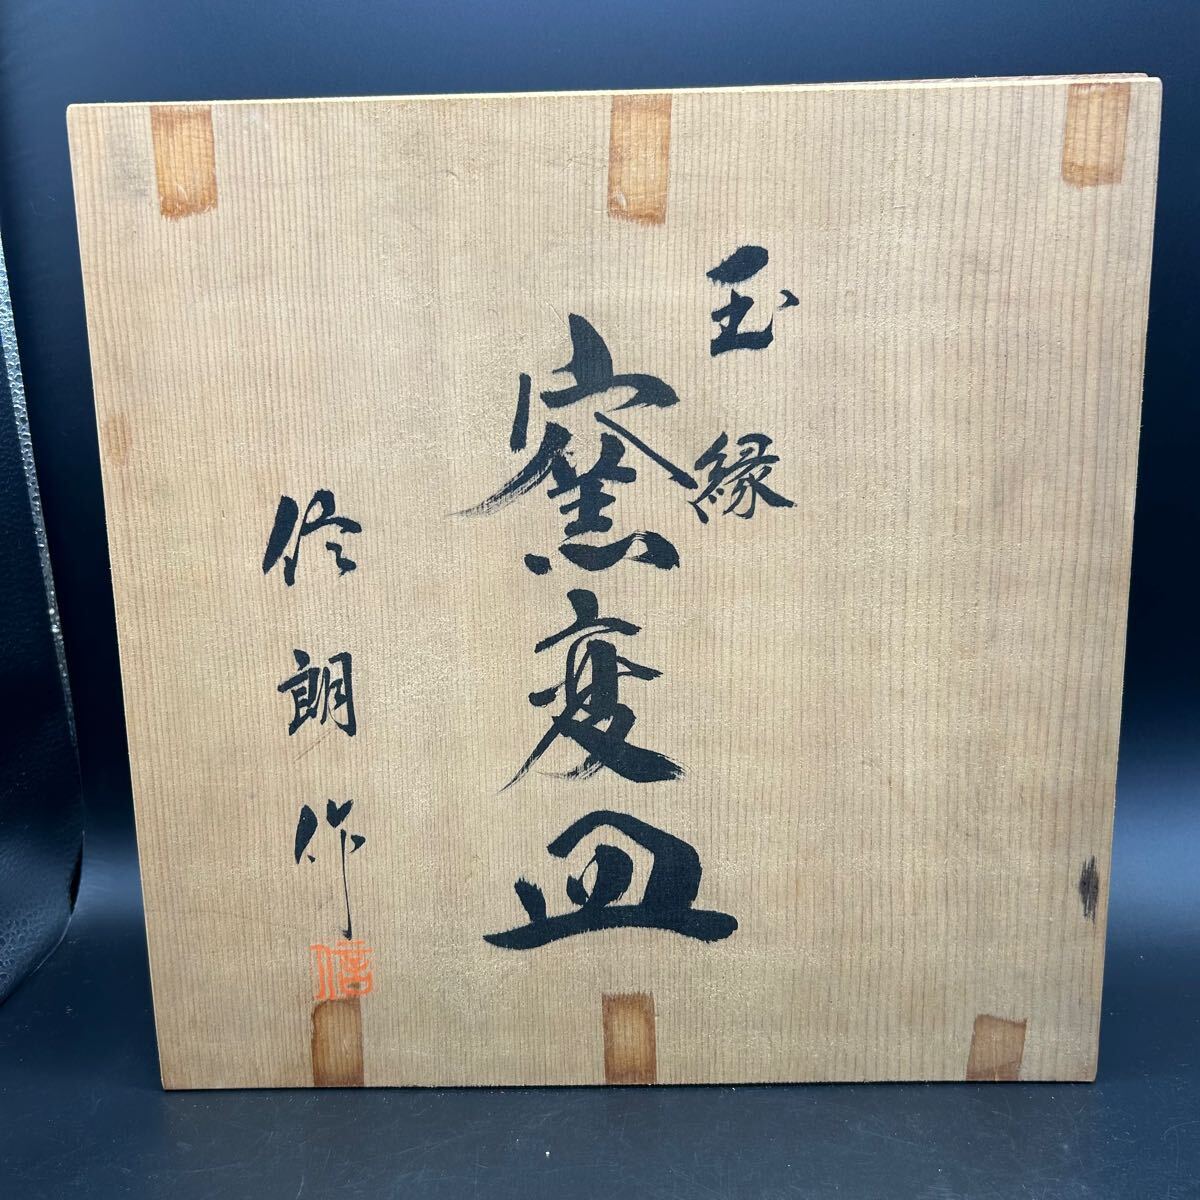 玉縁
窯変皿
信朗作
信